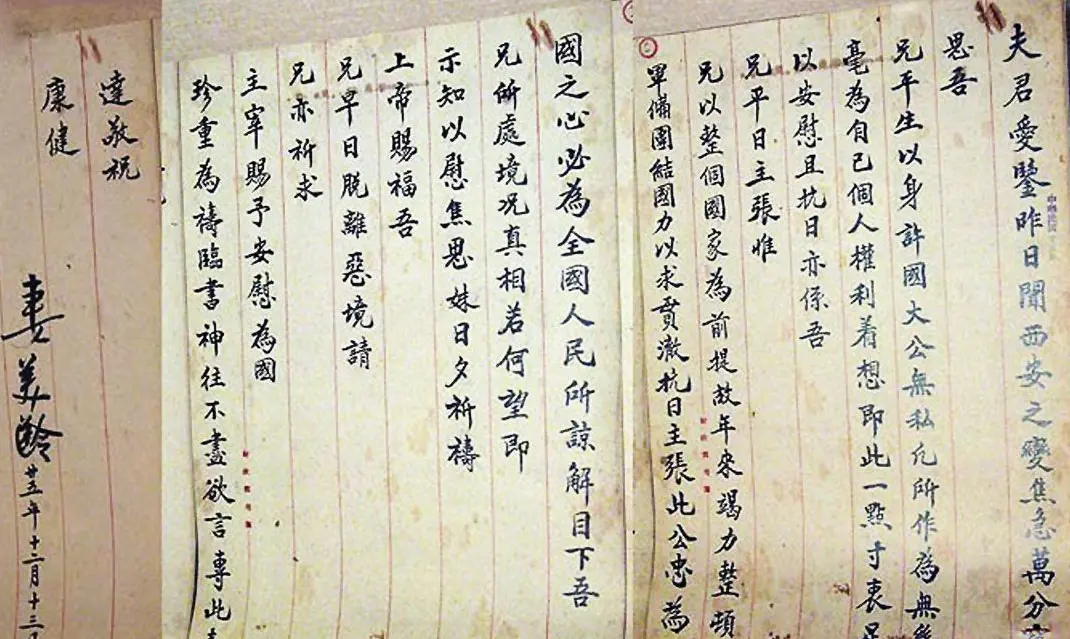 夫君愛鑒昨日聞西安之變焦急萬分
思吾
兄平生以身許國大公無私凡所作為無絲
毫為自己個人權利着想即此一點寸衷足
以安慰且抗日亦係吾
兄平日主張惟
兄以整個國家為前提故年來竭力整頓
軍備團結國力以求貫澈抗日主張此公忠為
國之心必為全國人民所諒解目下吾
兄所處境況真相若何望即
示知以慰焦思妹日夕祈禱
上帝賜福吾
兄早日脫離惡境請
兄亦祈求
主宰賜予安慰為國
珍重為禱臨書神往不盡欲言專此
達敬祝
康健
妻美齡 廿五年十二月十三